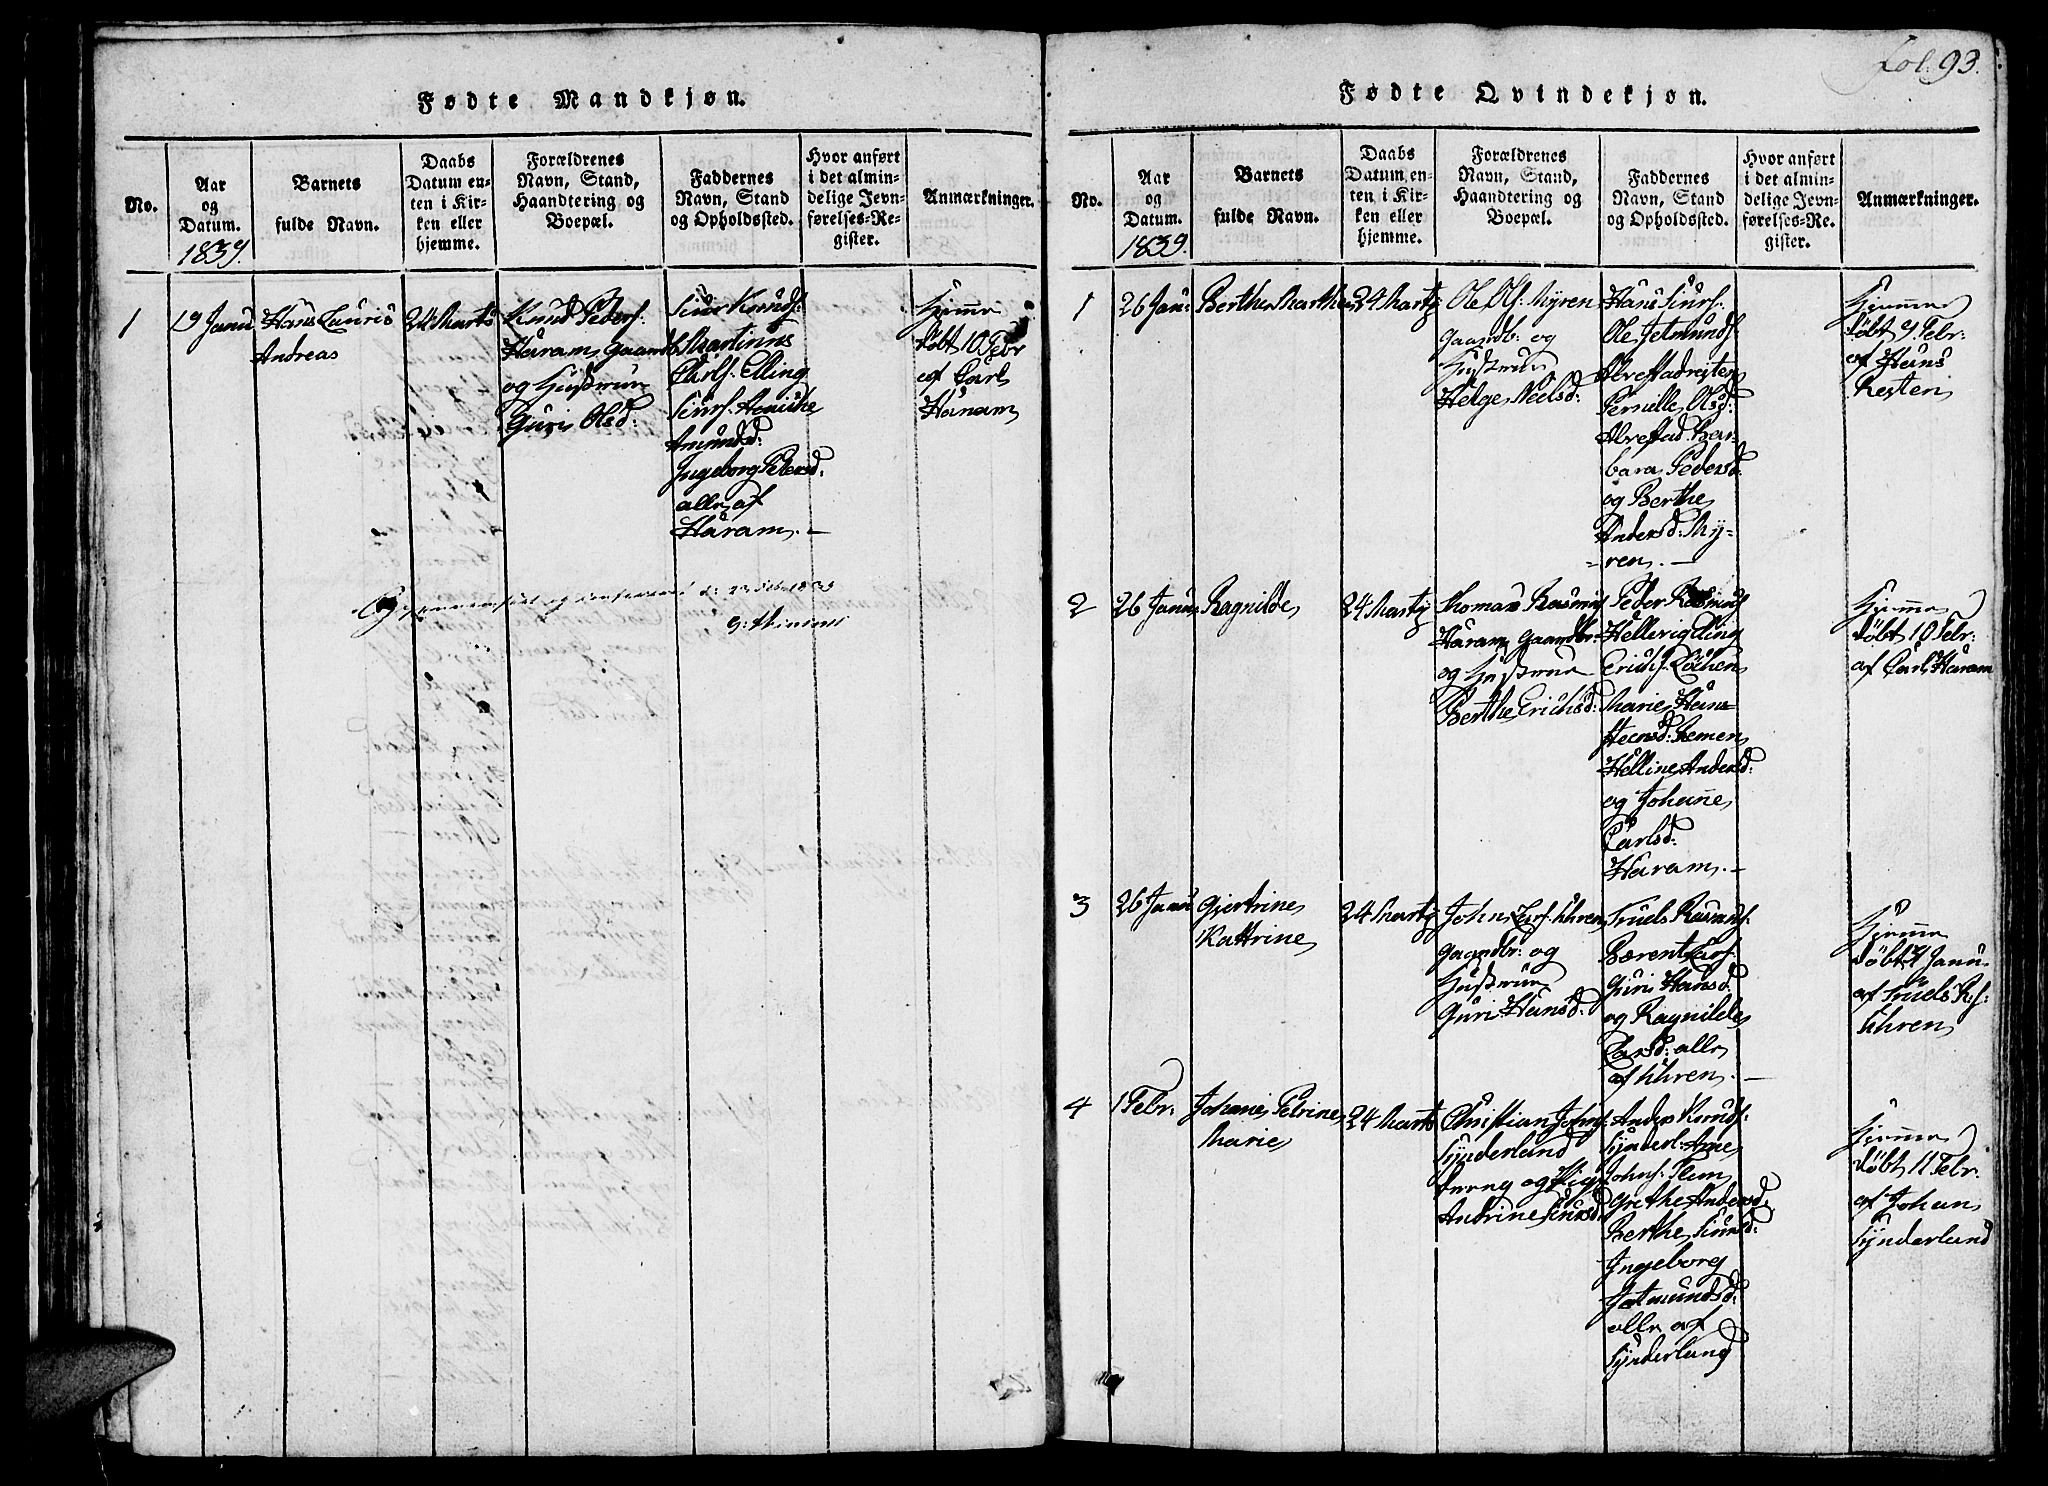 Fødte Mandkjøn.
No.
Aar
og
Datum.
1839.
Barnets
fulde Navn.
Daabs
Datum en-
ten i Kir-
ken eller
hjemme.
Forældrenes
Navn, Stand,
Haandtering og
Boepæl.
Faddernes
Navn, Stand
og Opholdssted.
Hvor anført
i det almin-
delige Jevn-
førelses-Re-
gister.
Anmærkninger.
1
19 Janu
Hans Lauris
Andreas
24 Marts
Knud Peders:
Haram Gaardb
og Hustrue
Guri Olsd:
Siur Knuds:
Martinus
Carls: Elling
Siurs:
Amundsd:
Ingeborg Petersd:
alle af
Haram. —
Hjemme
døbt 10 Febr
af Carl
Haram
Fol. 93.
Fødte Qvindekjøn.
No.
Aar
og
Datum.
1839.
Barnets
fulde Navn.
Daabs
Datum, en-
ten i Kir-
ken eller
hjemme.
Forældrenes
Navn, Stand,
Haandtering og
Boepæl.
Faddernes
Navn, Stand
og Opholdssted.
Hvor anført
i det almin-
delige Jevn-
førelses-Re-
gister.
Anmærkninger.
1
26 Janu:
Berthe Marthe
24 Marty
Ole Ols: Myren
Gaardb: og
Hustrue
Helge Neelsd:
Hans Siurs:
Ole Jetmunds:
Pernille Olsd:
Alvestad Bar-
bara Pedersd:
og Berthe
Andersd: My-
ren. —
Hjemme
døbt Febr:
af Hans
2
26 Janu
Ragnilde
24 Marty
Thomas Rasmus:
Haram Gaardbr:
og Hustrue
Berthe Erichsd:
Peder Rasmus:
Hellevig Elling
Erichs:
Marie Hans
Helline Andersd:
og Johanne
Carlsd:
Haram. —
Hjemme
døbt 10 Febr:
af Carl Haram
3
26 Janu
Gjertrine
Kattrine
24 Marty
John Uhren
Gaardbr: og
Hustrue
Guri Hansd:
Truels Rasmus:
Bærent Lars:
Guri Hansd:
og Ragnilde
Larsd: alle
af Uhren. —
Hjemme
døbt Janu
af Truels
Uhren
4
1 Febr:
Johanne Petrine
Marie
24 Marts
Christian Johns:
Synderland
Dreng og Pige
Andrine Siursd:
Anders Knuds:
Synderl: Arne
Johns: Flem
Grethe Andersd
Berthe Siursd:
Ingeborg
Jetmundsd:
alle af
Synderland
Hjemme
døbt 11 Febr.
af Johan
Synderland